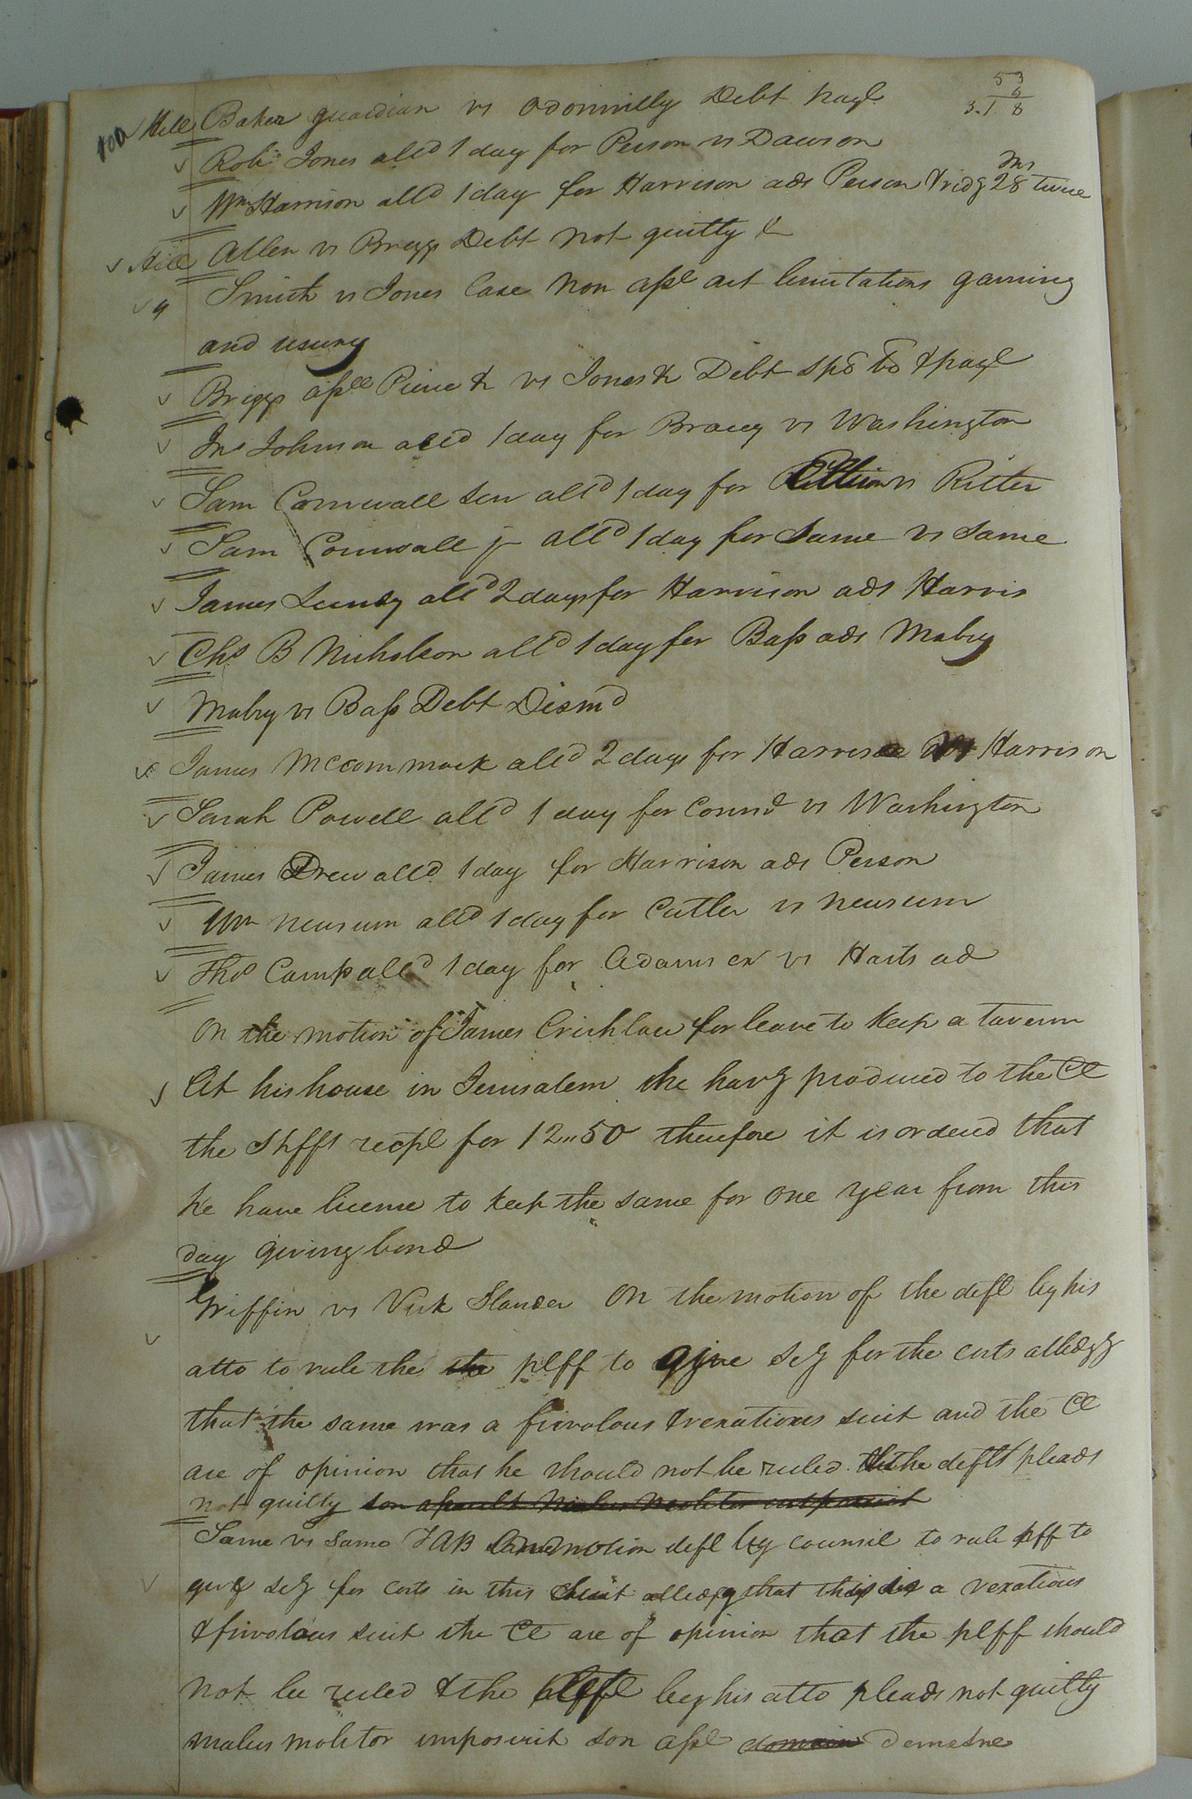 53
6
3.18
100 Hill Baker guardian vs Odonnilly Debt
Robt Jones alld 1 day for Person vs Dawson
Wm Harrison alld 1 day for Harrison ads Person & ridg 28 ms twice
Hill Allen vs Briggs Debt not guilty &
Smith vs Jones Case Non assl act limitations gaming
and usury
Briggs assee Pierce &c vs Jones &c Debt spo bo & payt
Jno Johnson alld 1 day for Bracy vs Washington
Sam Cornwall sen alld 1 day for vs Ritter
Sam Cornwall jr alld 1 day for Same vs Same
James Lundy alld 2 days for Harrison ads Harris
Chs B Nicholson alld 1 day for Bass ads Mabry
Mabry vs Bass Debt Dismd
James Mccommack alld 2 days for Harris vs Harrison
Sarah Powell alld 1 day for Commd vs Washington
James Drew alld 1 day for Harrison ads Person
Wm Newsum alld 1 day for Cutler vs Newsum
Thos Camp alld 1 day for Adams ex vs Harts ad
On the motion of James Crichlow for leave to keep a tavern
At his house in Jerusalem he havg produced to the Ct
the Shffs recpt for 12..50 therefore it is ordered that
he have license to keep the same for one year from this
day giving bond
Griffin vs Vick Slander On the motion of the deft by his
atto to rule the the plff to give scy for the costs alledgg
that the same was a frivolous & vexatious suit and the Ct
are of opinion that he should not be ruled the defts pleads
not guilty son assault
Same vs Same TAB motion deft by council to rule plff to
give scy for costs in this suit alledgg that this is a vexatious
& frivolous suit the Ct are of opinion that the plff should
not be ruled & the deft by his atto pleads not guilty
malus molitor imposuit son asst domain demesne